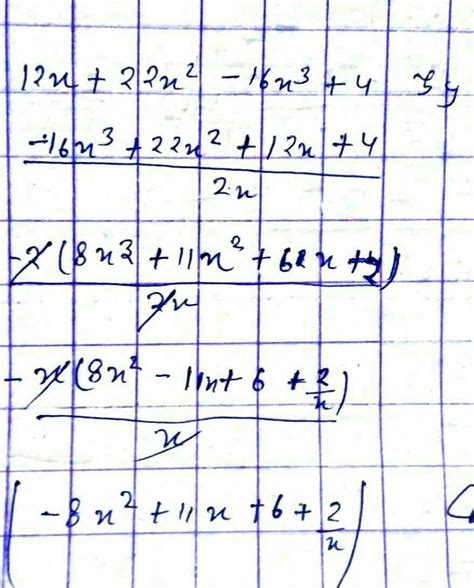 12x + 22x² - 16x³ + 4
-16x³ + 22x² + 12x + 4
2x
-2(8x³ + 11x² + 6x + 2)
2x
-x(8x² - 11x + 6 + 2/x)
x
(-8x² + 11x + 6 + 2/x)